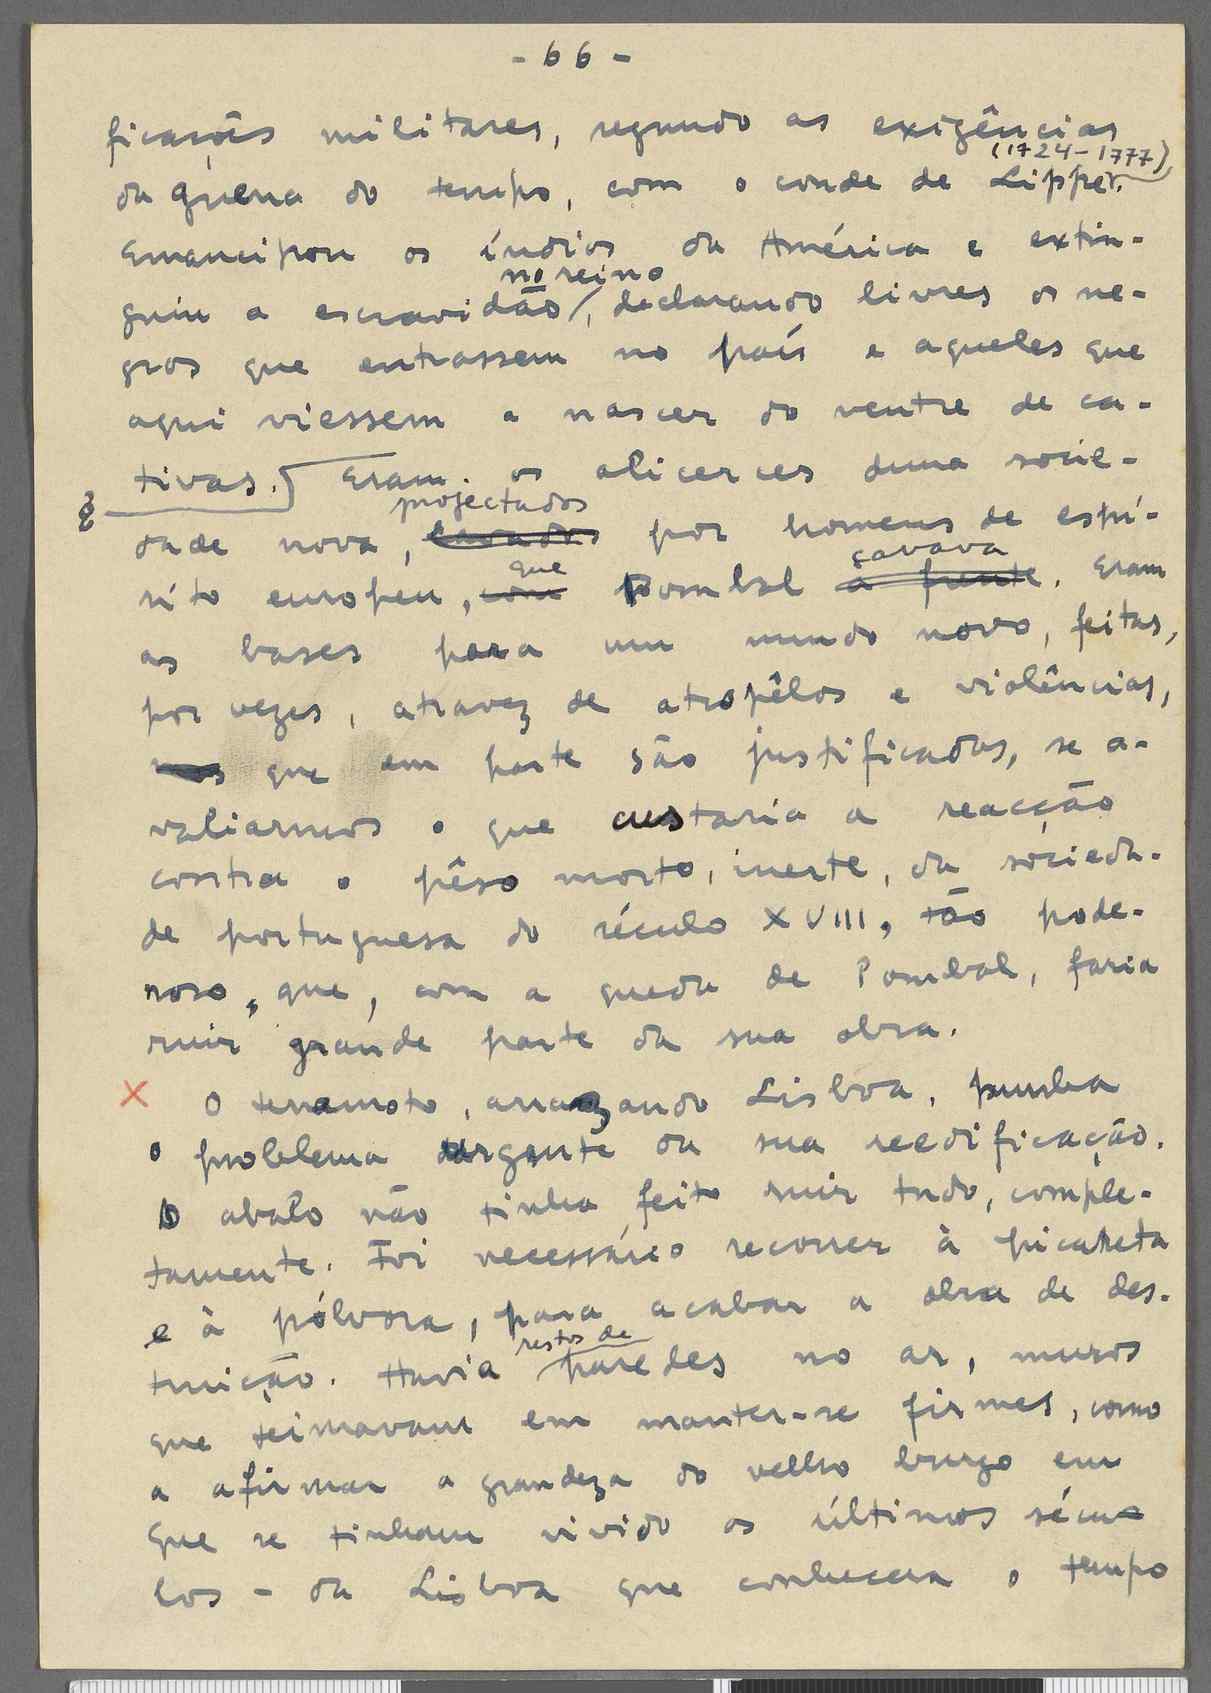 - 66 -
ficações militares, segundo as exigências
(1724-1777)
da guerra do tempo, com o conde de Lippe.
Emancipou os índios da América e extin-
no reino
guiu a escravidão, declarando livres os ne-
gros que entrassem no país e aqueles que
aqui viessem a nascer do ventre de ca-
tivas. Eram os alicerces duma socie-
projectados
dade nova, cavados por homens de espí-
que cavava
rito europeu, com Pombal à frente. Eram
as bases para um mundo novo, feitas,
por vezes, atravez de atropêlos e violências,
mas que em parte são justificadas, se a-
valiarmos o que custaria a reacção
contra o pêso morto, inerte, da socieda-
de portuguesa do século XVIII, tão pode-
roso, que, com a queda de Pombal, faria
ruir grande parte da sua obra.
X O terramoto, arrazando Lisboa, punha
o problema urgente da sua reedificação.
O abalo não tinha feito ruir tudo, comple-
tamente. Foi necessário recorrer à picareta
e à pólvora, para acabar a obra de des-
restos de
truição. Havia paredes no ar, muros
que teimavam em manter-se firmes, como
a afirmar a grandeza do velho burgo em
que se tinham vivido os últimos sécu-
los - da Lisboa que conhecera o tempo